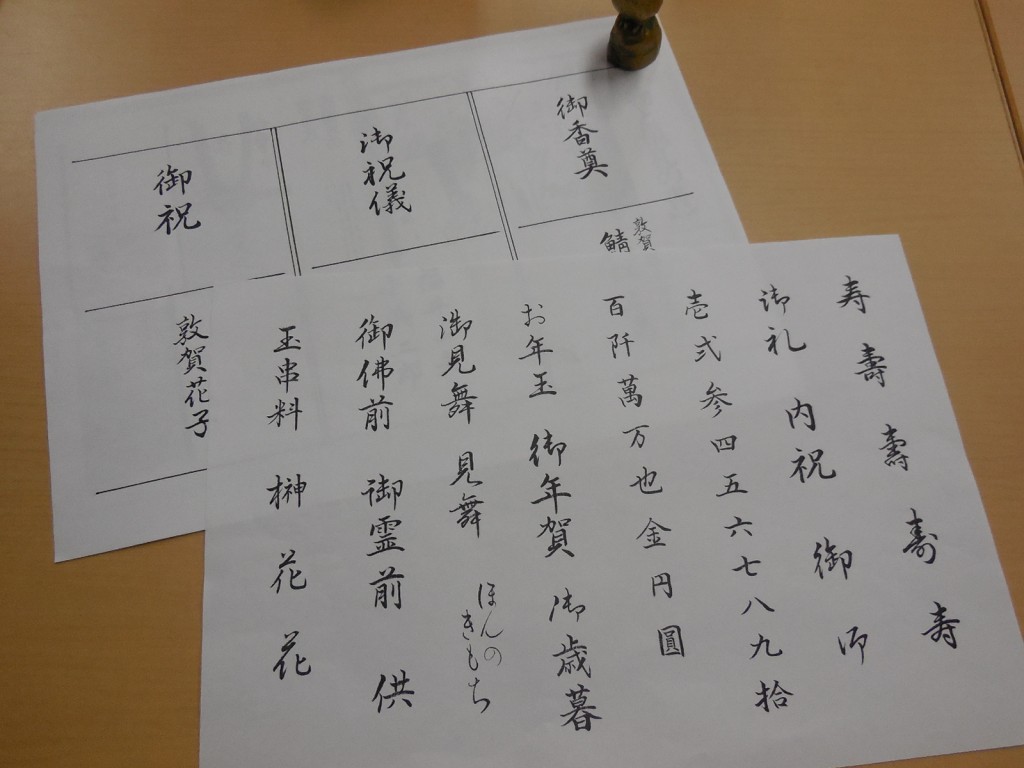 寿 壽 壽 寿 寿
御礼 内祝 御 御
壱弐参四五六七八九拾
百阡萬万也金円圓
お年玉 御年賀 御歳暮
御見舞 見舞 ほんの
きもち
御佛前 御霊前 供
玉串料 榊 花 花
御香奠
敦賀
鯖
御祝儀
御祝
敦賀花子